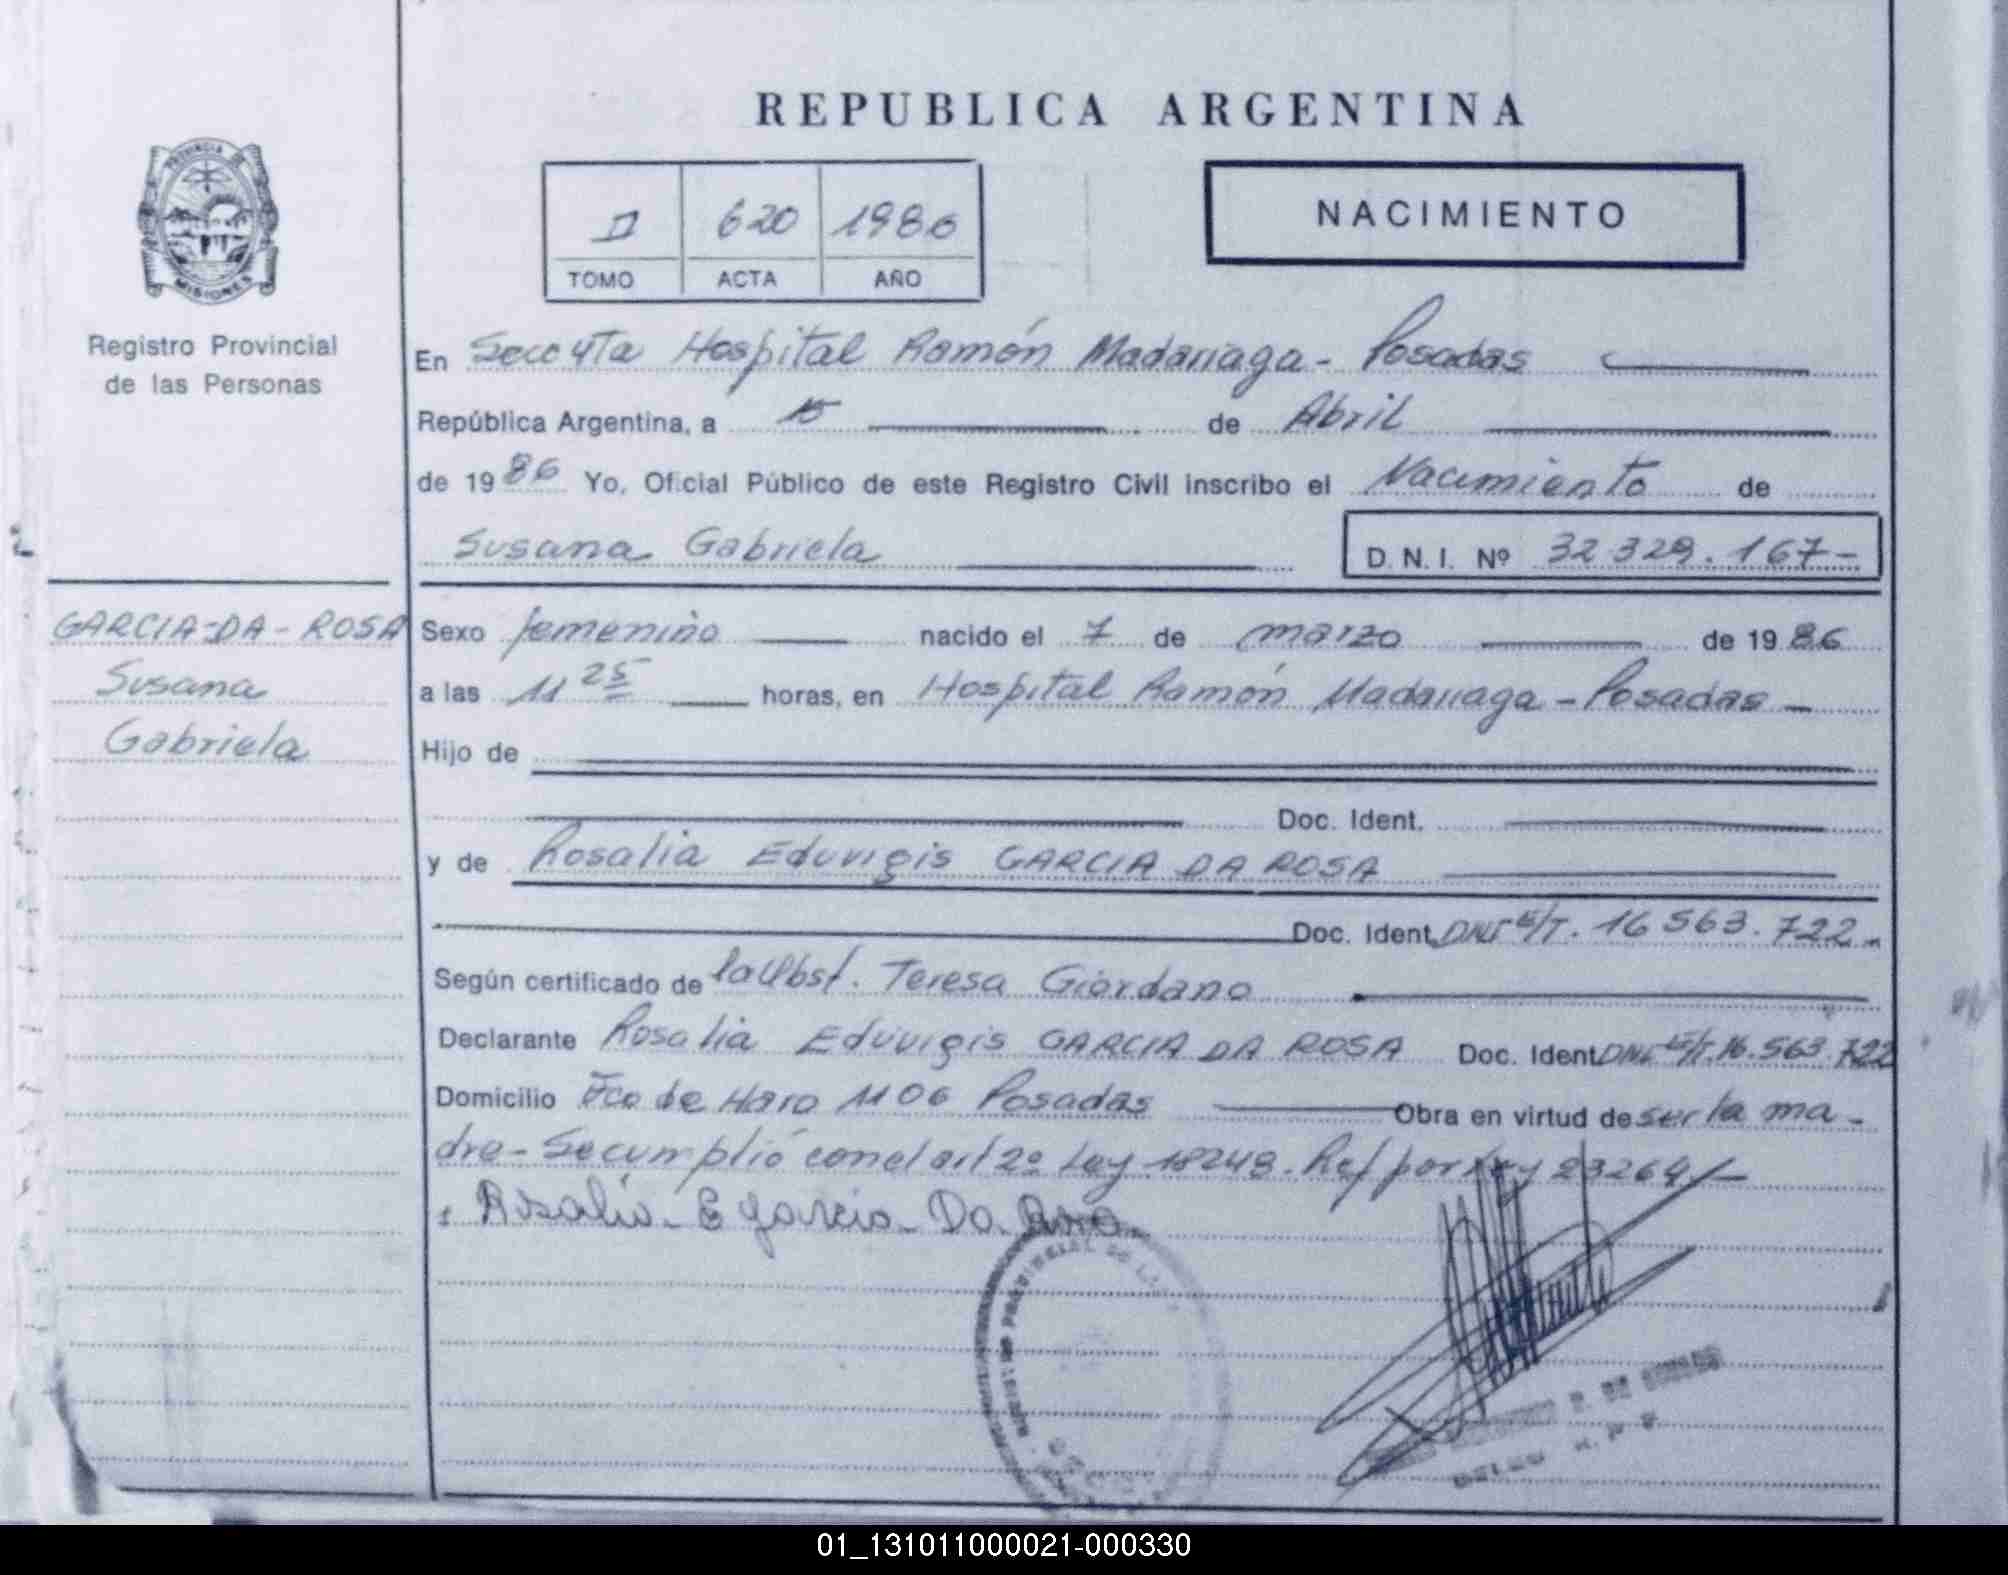 REPUBLICA ARGENTINA
PROVINCIA DE
MISIONES
Registro Provincial
de las Personas
II 620 1986
TOMO ACTA AÑO
NACIMIENTO
En Secc 4ta Hospital Ramón Madariaga - Posadas
República Argentina, a 15 de Abril
de 1986 Yo, Oficial Público de este Registro Civil inscribo el Nacimiento de
Susana Gabriela D. N. I. Nº 32 329. 167-
GARCIA-DA-ROSA
Susana
Gabriela
Sexo femenino nacido el 7 de marzo de 1986
a las 11 25 horas, en Hospital Ramón Madariaga - Posadas -
Hijo de
Doc. Ident.
y de Rosalia Eduvigis GARCIA DA ROSA
Doc. Ident. DNI E/T. 16 563. 722-
Según certificado de la Obst. Teresa Giordano
Declarante Rosalia Eduvigis GARCIA DA ROSA Doc. Ident. DNI E/T. 16. 563. 722
Domicilio Fco de Haro 1106 Posadas Obra en virtud de ser la ma-
dre - Se cumplió con el art 2º Ley 18248. Ref por Ley 23264/-
Rosalia E garcia Da Rosa
01_131011000021-000330